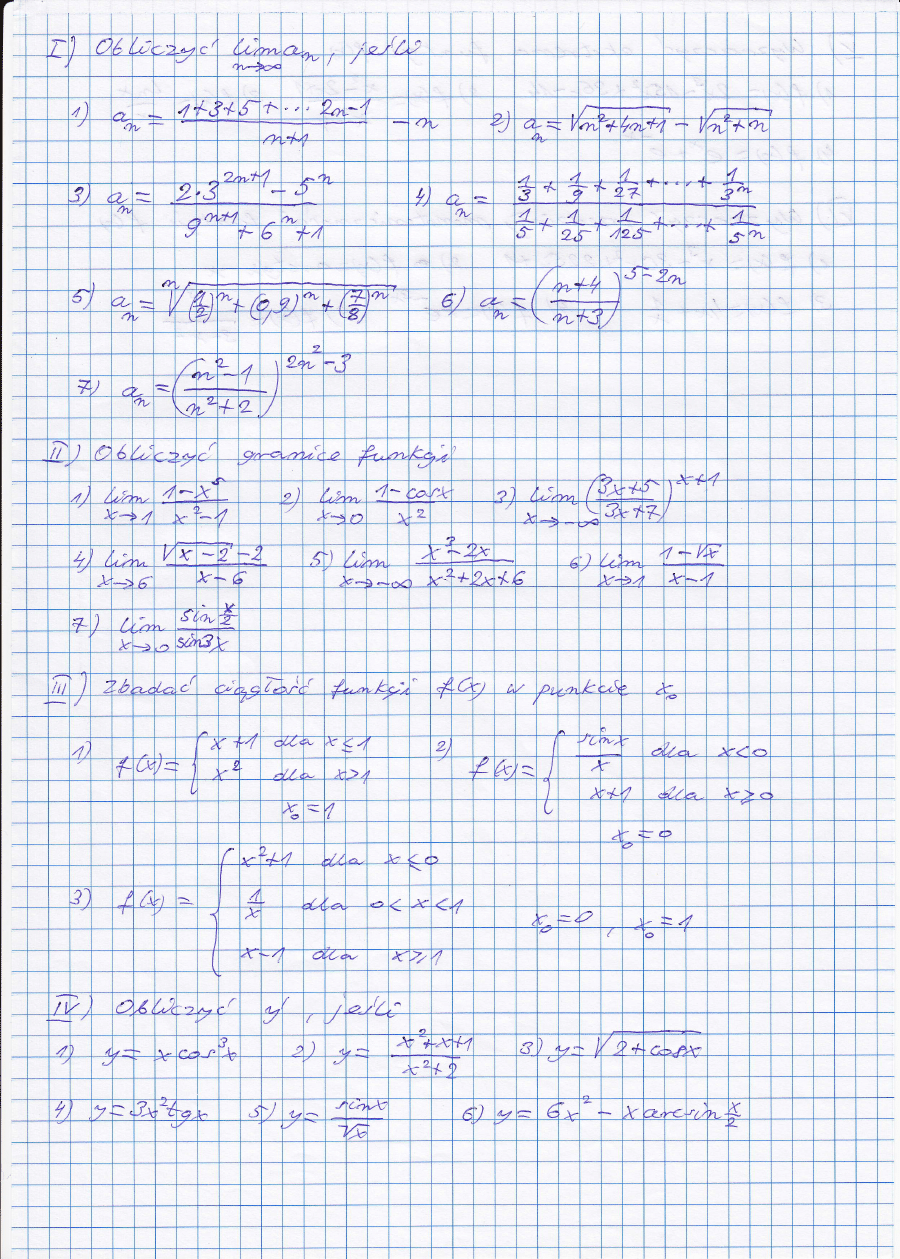 I) Obliczyć lim aₙ, jeśli
n→∞
1) aₙ = (1+3+5+... 2n-1)/(n+1) - n   2) aₙ = √(n²+4n+1) - √(n²+n)
3) aₙ = (2·3^(2n+1) - 5^n)/(9^(n+1) + 6^n + 1)   4) aₙ = (1/3 + 1/9 + 1/27 + ... + 1/3^n)/(1/5 + 1/25 + 1/125 + ... + 1/5^n)
5) aₙ = ⁿ√((1/2)^n + (0,9)^n + (7/8)^n)   6) aₙ = ((n+4)/(n+3))^(5-2n)
7) aₙ = ((n²-1)/(n²+2))^(2n²-3)
II) Obliczyć granice funkcji
1) lim x→1 (1-x⁵)/(x²-1)   2) lim x→0 (1-cosx)/x²   3) lim x→-∞ ((3x+5)/(3x+7))^(x+1)
4) lim x→6 (√(x-2) - 2)/(x-6)   5) lim x→-∞ (x³-2x)/(x²+2x+6)   6) lim x→1 (1-√x)/(x-1)
7) lim x→0 (sin x/2)/(sin3x)
III) Zbadać ciągłość funkcji f(x) w punkcie x₀
1) f(x) = { x+1 dla x≤1
x² dla x>1
x₀=1
2) f(x) = { sinx/x dla x<0
x+1 dla x≥0
x₀=0
3) f(x) = { x²+1 dla x≤0
1/x dla 0<x<1
x-1 dla x≥1
x₀=0, x₀=1
IV) Obliczyć y', jeśli
1) y = x cos³x   2) y = (x²+x+1)/(x²+2)   3) y = √(2+cosx)
4) y = 3x²tgx   5) y = sinx/√x   6) y = 6x² - x arcsin x/2